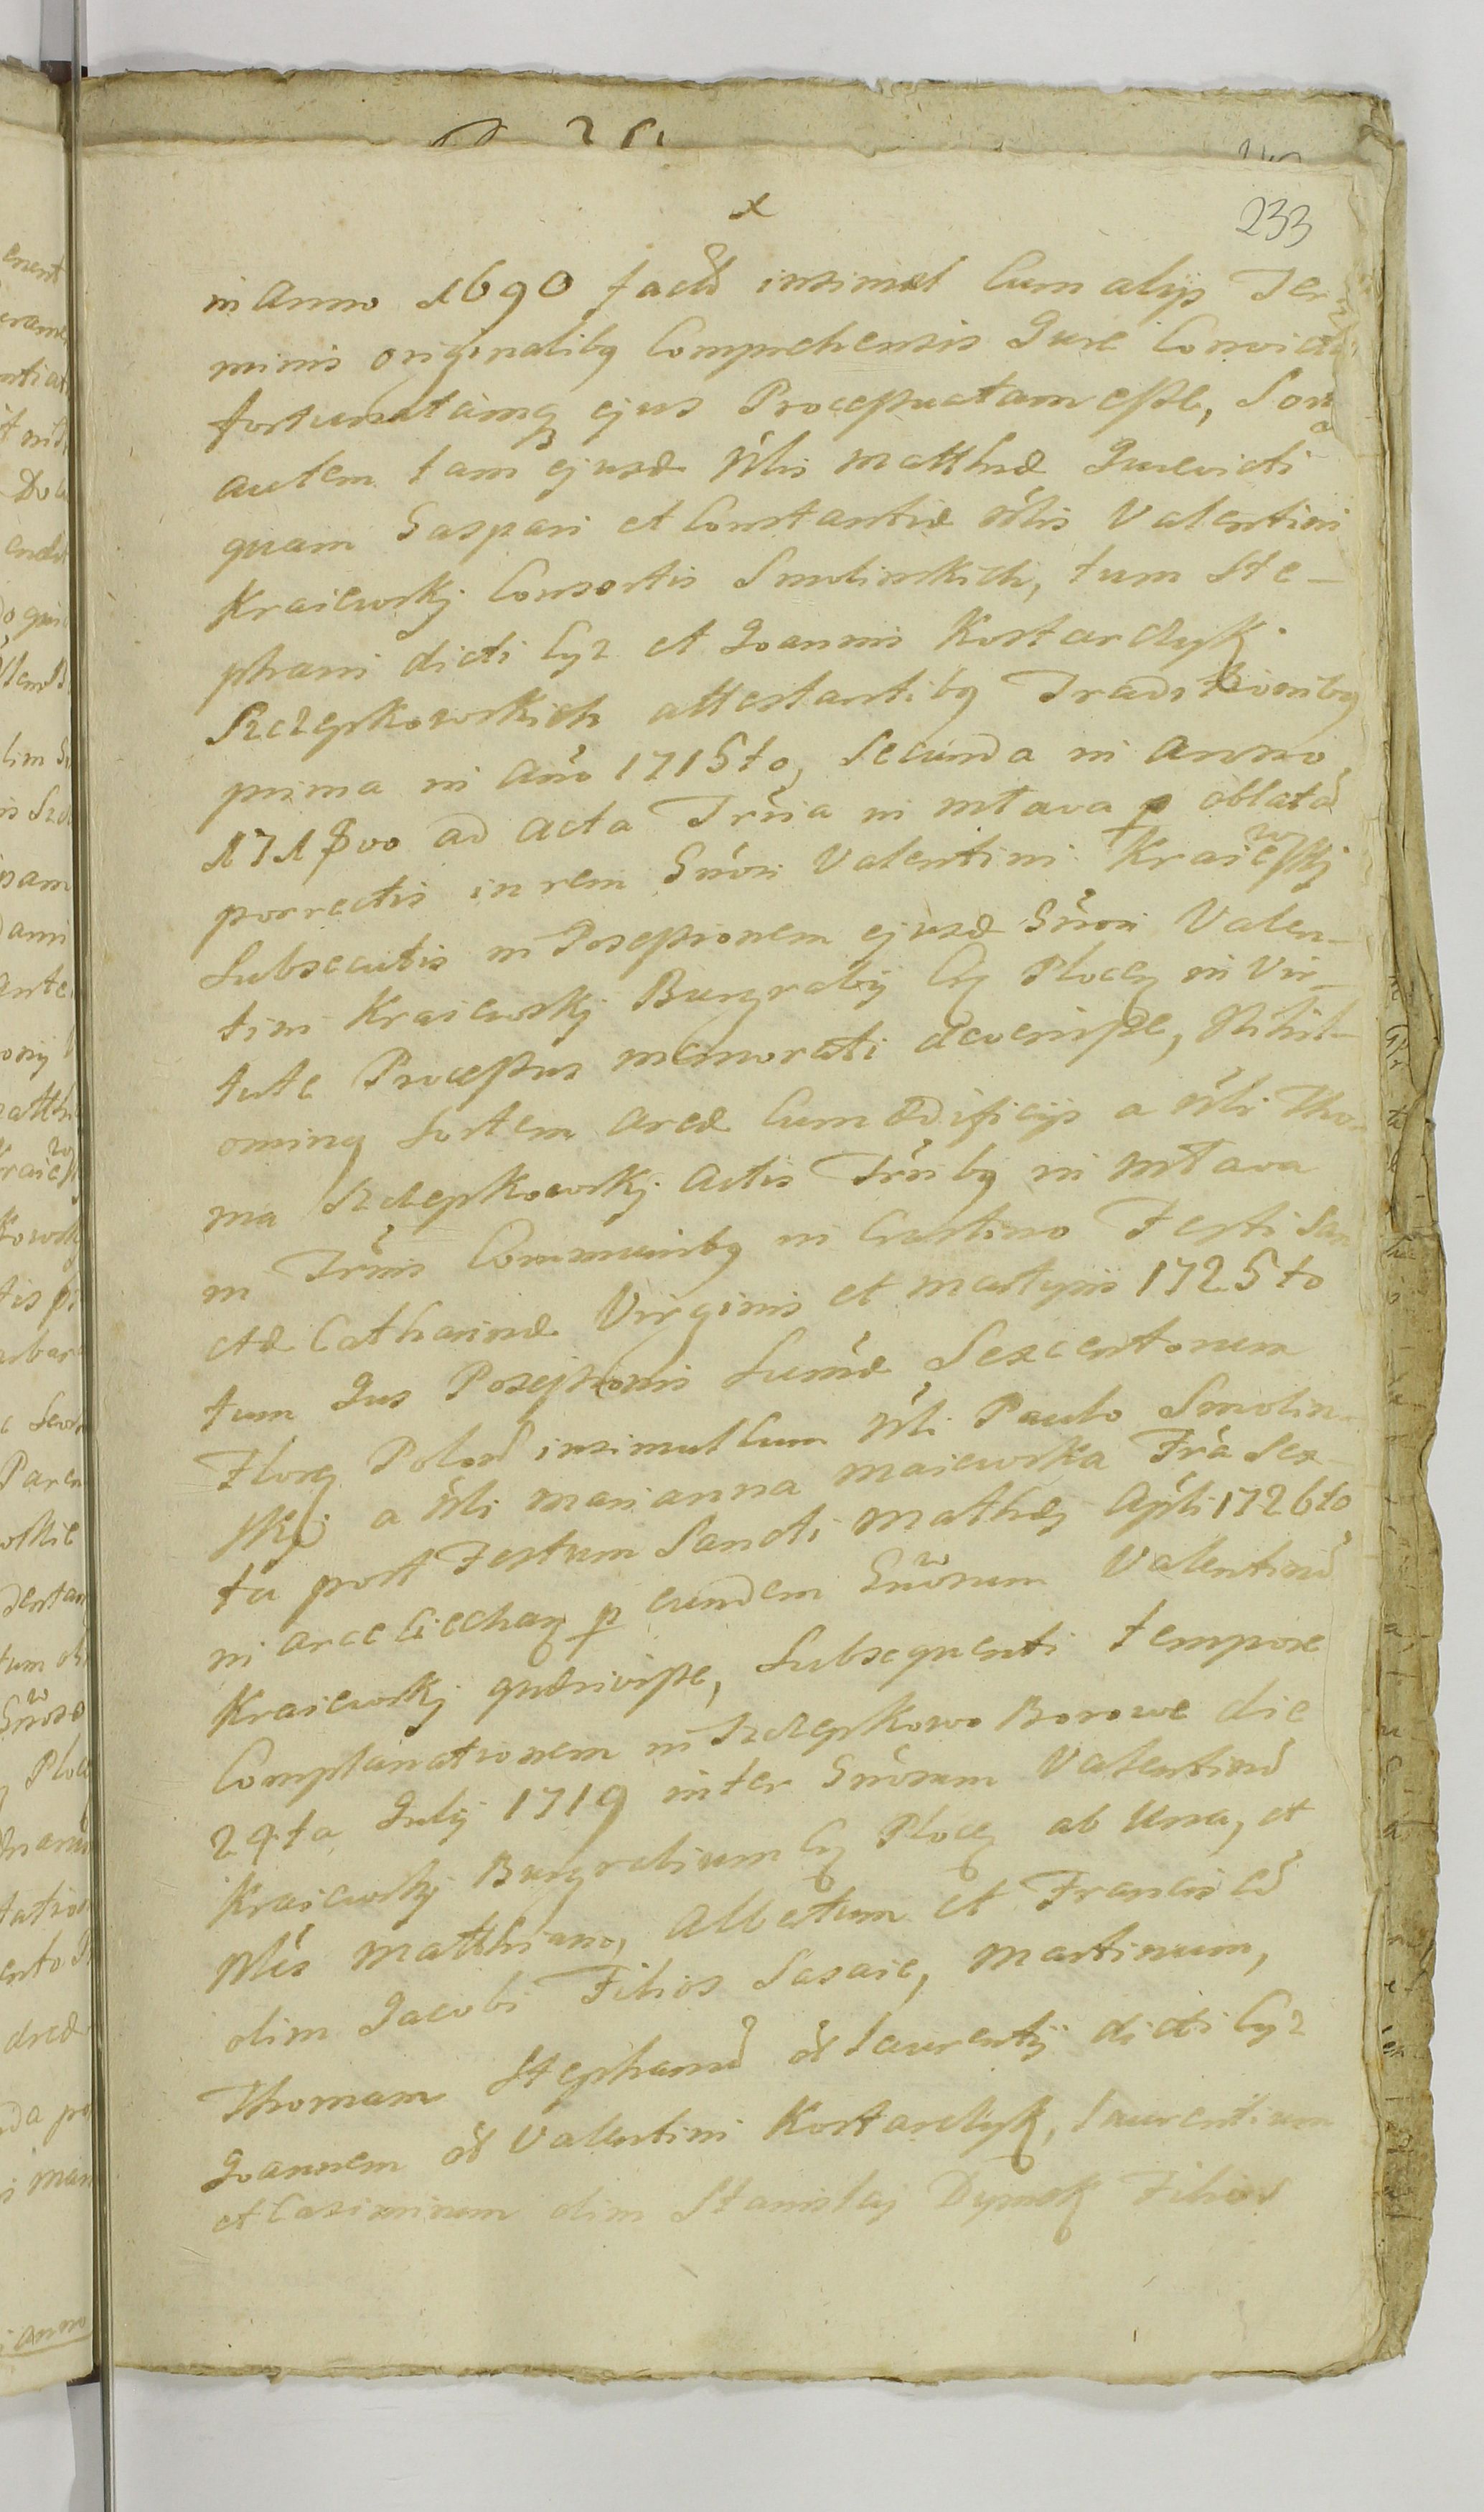 x
233
in Anno 1690 factã insimul Cum alijs Ter-
minis originalibq Comprehensis Jure Convicti
fortunatamq ejus Processuatam esse, Sors
autem tam ejusd Nlis Matthiæ Jurevicti
quam Gaspari et Constantiæ Nlis Valentini
Kraiewskj Consortis Smolinskich, tum Ste-
phani dicti Cyz et Joannis Kostarczyk
Szczepkowskich attestantibq Traditionibq
prima in Año 1715to, Secunda in Anno
1718vo ad Acta Trria in Mława p oblatã
porrectis in rem Gnõsi Valentini Kraiewskj
Subsecutis in Possessionem ejusd Gnõsi Valen-
tini Kraiewskj Burgrabij Cq Plocq in Vir-
tute Processus memorati devenisse, Nihil-
ominq Sortem Areæ Cum ædificijs a Nli Tho-
ma Szczepkowskj Actis Trribq in Mława
in Trris Communibq in Crastino Festi San
ctæ Catharinæ Virginis et Martyris 1725to
tum Jus Possessionis Sumæ Sexcentorum
Floreq Polonð insimul Cum Nli Paulo Smolin-
skj a Nli Marianna Maiewska Fria Sex-
ta post Festum Sancti Mathæj Apli 1726to
in Arce Ciechaq p eundem Gnõsum Valentinũ
Kraiewskj quæsivisse, Subsequenti tempore
Complanationem in Szczepkowo Borowe die
24ta Julij 1719 inter Gnõsum Valentinũ
Kraiewskj Burgrabium Cq Plocq ab Una, et
Nles Matthiam, Albertum et Franciscũ
olim Jacobi Filios Sasaie, Martinum,
Thomam Stephanũ oł Laurentij dicti Cyz
Joannem oł Valentini Kostarczyk, Laurentium
et Casimirum olim Stanislaj Dymek Filios